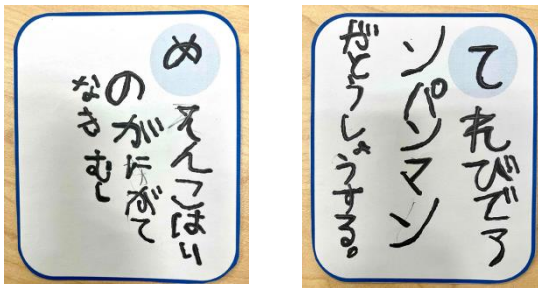 めえんこはい
のがにがて
なきむし
てれびでア
ンパンマン
がとうしょうする。